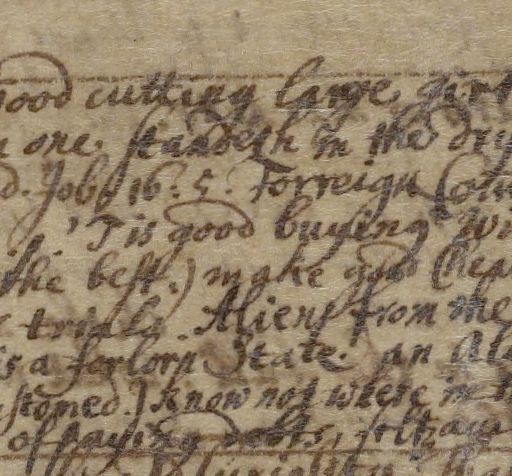 good cutting large girt
one. standeth in the dry
d. Job. 16. 5. Forreign Coun
'Tis good buying wi
the best.) make good Cheap
trials. Aliens from the
is a forlorn State. an Al
ustomed.) Know not where in
of paying debts,